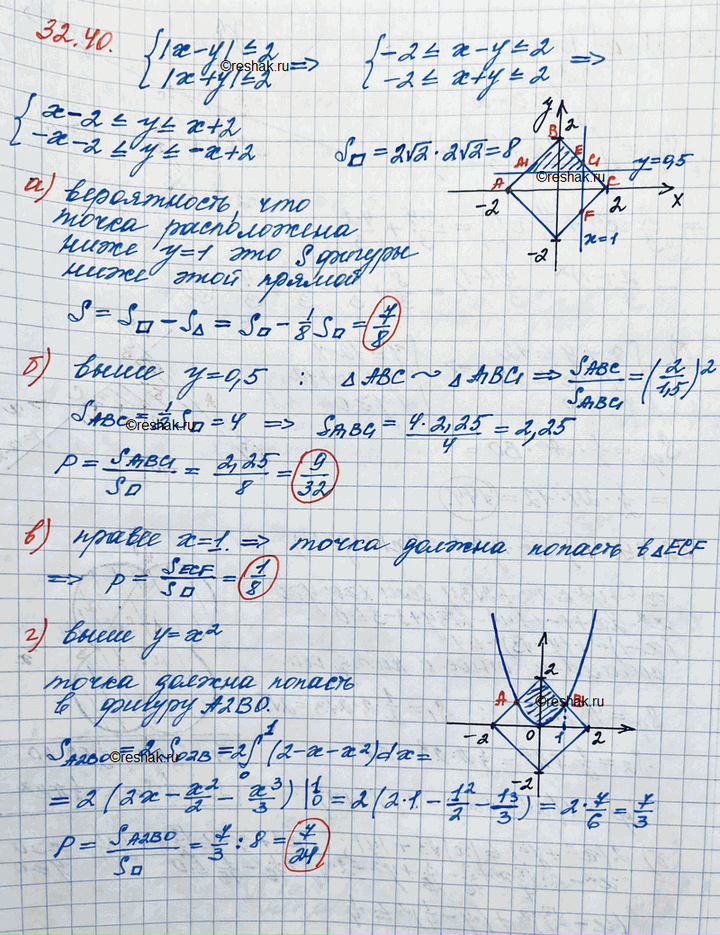 32.40.
{|x-y| ≤ 2
{|x+y| ≤ 2 => {-2 ≤ x-y ≤ 2
{-2 ≤ x+y ≤ 2 =>
©reshak.ru
{x-2 ≤ y ≤ x+2
{-x-2 ≤ y ≤ -x+2
S□ = 2√2·2√2 = 8
y
B 2
A1 E C1 y=0,5
©reshak.ru
A C
-2 2 x
F
-2 x=1
а) вероятность, что
точка расположена
ниже y=1 это S фигуры
ниже этой прямой
S = S□ - S△ = S□ - 1/8 S□ = 7/8
б) выше y=0,5 : △ABC ~ △A1BC1 => SABC/SA1BC1 = (2/1,5)²
SABC = 1/2 S□ = 4 => SA1BC1 = 4·2,25/4 = 2,25
©reshak.ru
P = SA1BC1/S□ = 2,25/8 = 9/32
в) правее x=1. => точка должна попасть в △ECF
=> p = SECF/S□ = 1/8
г) выше y=x²
точка должна попасть
в фигуру A2BO.
2
A B
©reshak.ru
-2 0 1 2
-2
SA2BO = 2·SO2B = 2∫₀¹(2-x-x²)dx =
©reshak.ru
= 2(2x - x²/2 - x³/3)|₀¹ = 2(2·1 - 1²/2 - 1³/3) = 2·7/6 = 7/3
P = SA2BO/S□ = 7/3 : 8 = 7/24